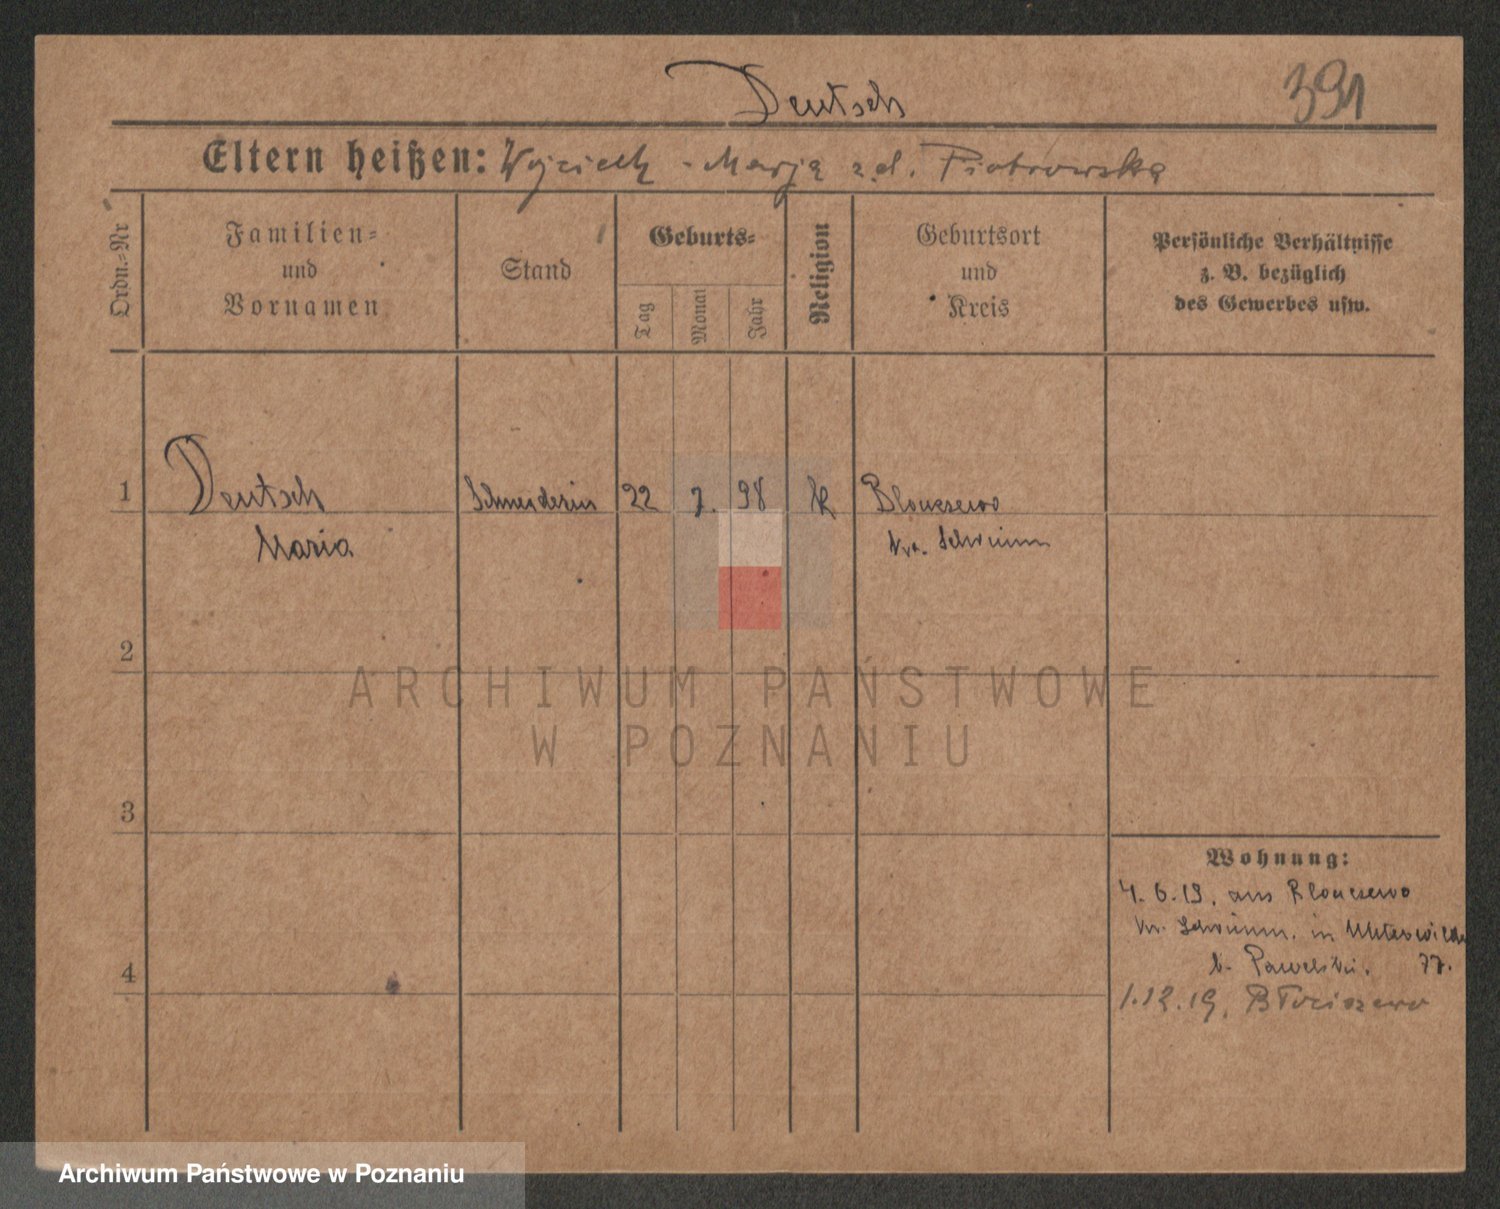 Deutsch 391
Eltern heißen: Wojciech - Marja z d. Piotrowska
Ordn.-Nr
Familien-
und
Vornamen
Stand
Geburts-
Tag
Monat
Jahr
Religion
Geburtsort
und
Kreis
Persönliche Verhältnisse
z. B. bezüglich
des Gewerbes usw.
1 Deutsch Schneiderin 22 7. 98 K
Maria Kr. Schrimm
2
ARCHIWUM PAŃSTWOWE
W POZNANIU
3
Wohnung:
4. 6. 19. aus
Kr. Schrimm. in Unterwilda
b. Pawelski. 77.
4
1.12.19. Błociszewo
Archiwum Państwowe w Poznaniu